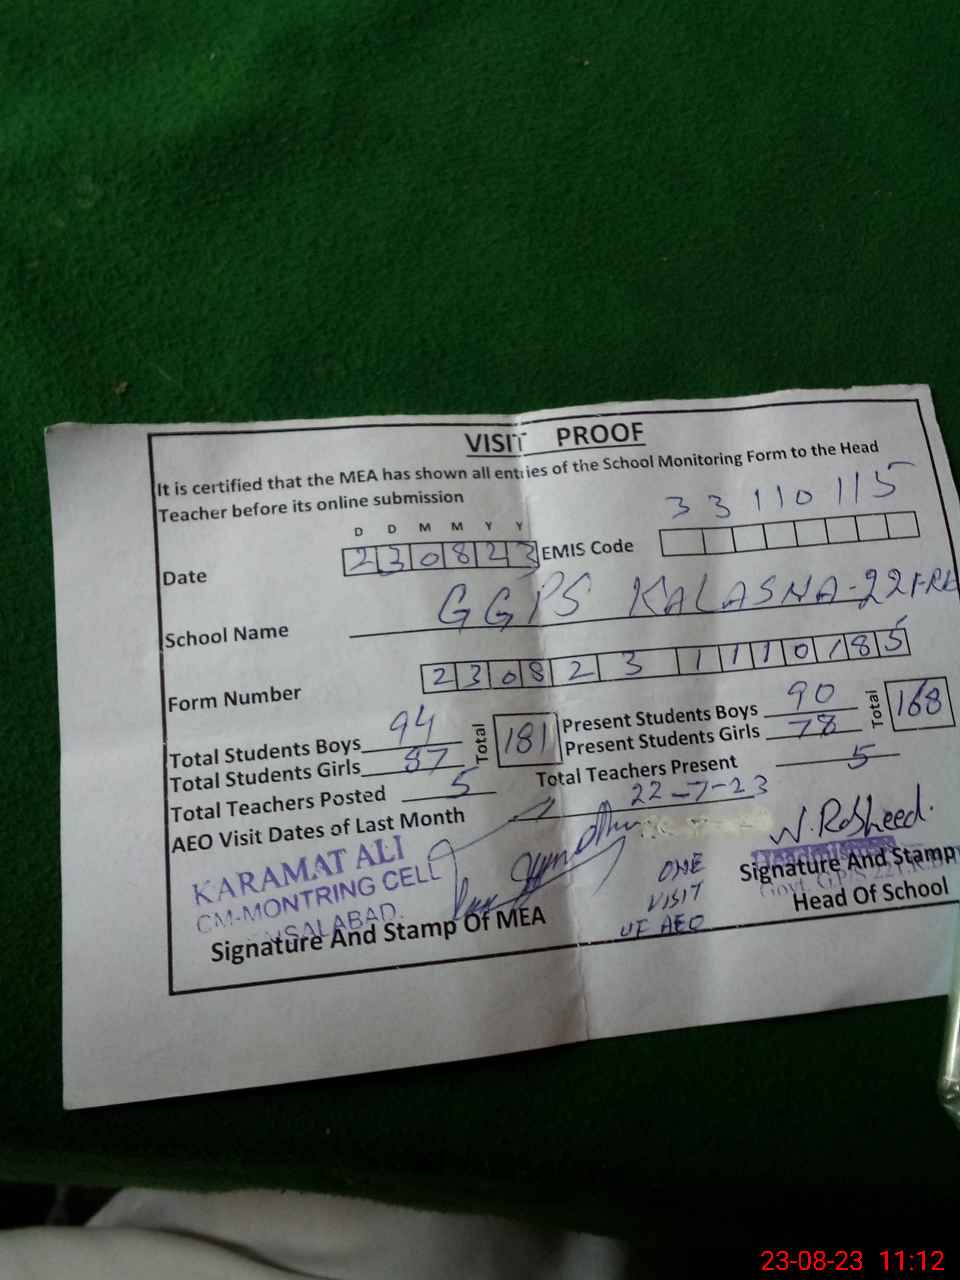 VISIT PROOF
It is certified that the MEA has shown all entries of the School Monitoring Form to the Head
Teacher before its online submission
D D M M Y Y
Date 230823 EMIS Code 33110115
School Name GGPS KALASNA-221-RB
Form Number 2308231110185
Total Students Boys 94 Total 181 Present Students Boys 90 Total 168
Total Students Girls 87 Present Students Girls 78
Total Teachers Posted 5 Total Teachers Present 5
AEO Visit Dates of Last Month 22-7-23
KARAMAT ALI
CM-MONTRING CELL
Signature And Stamp Of MEA
ONE
VISIT
OF AEO
W. Rasheed.
Signature And Stamp
Head Of School
23-08-23 11:12